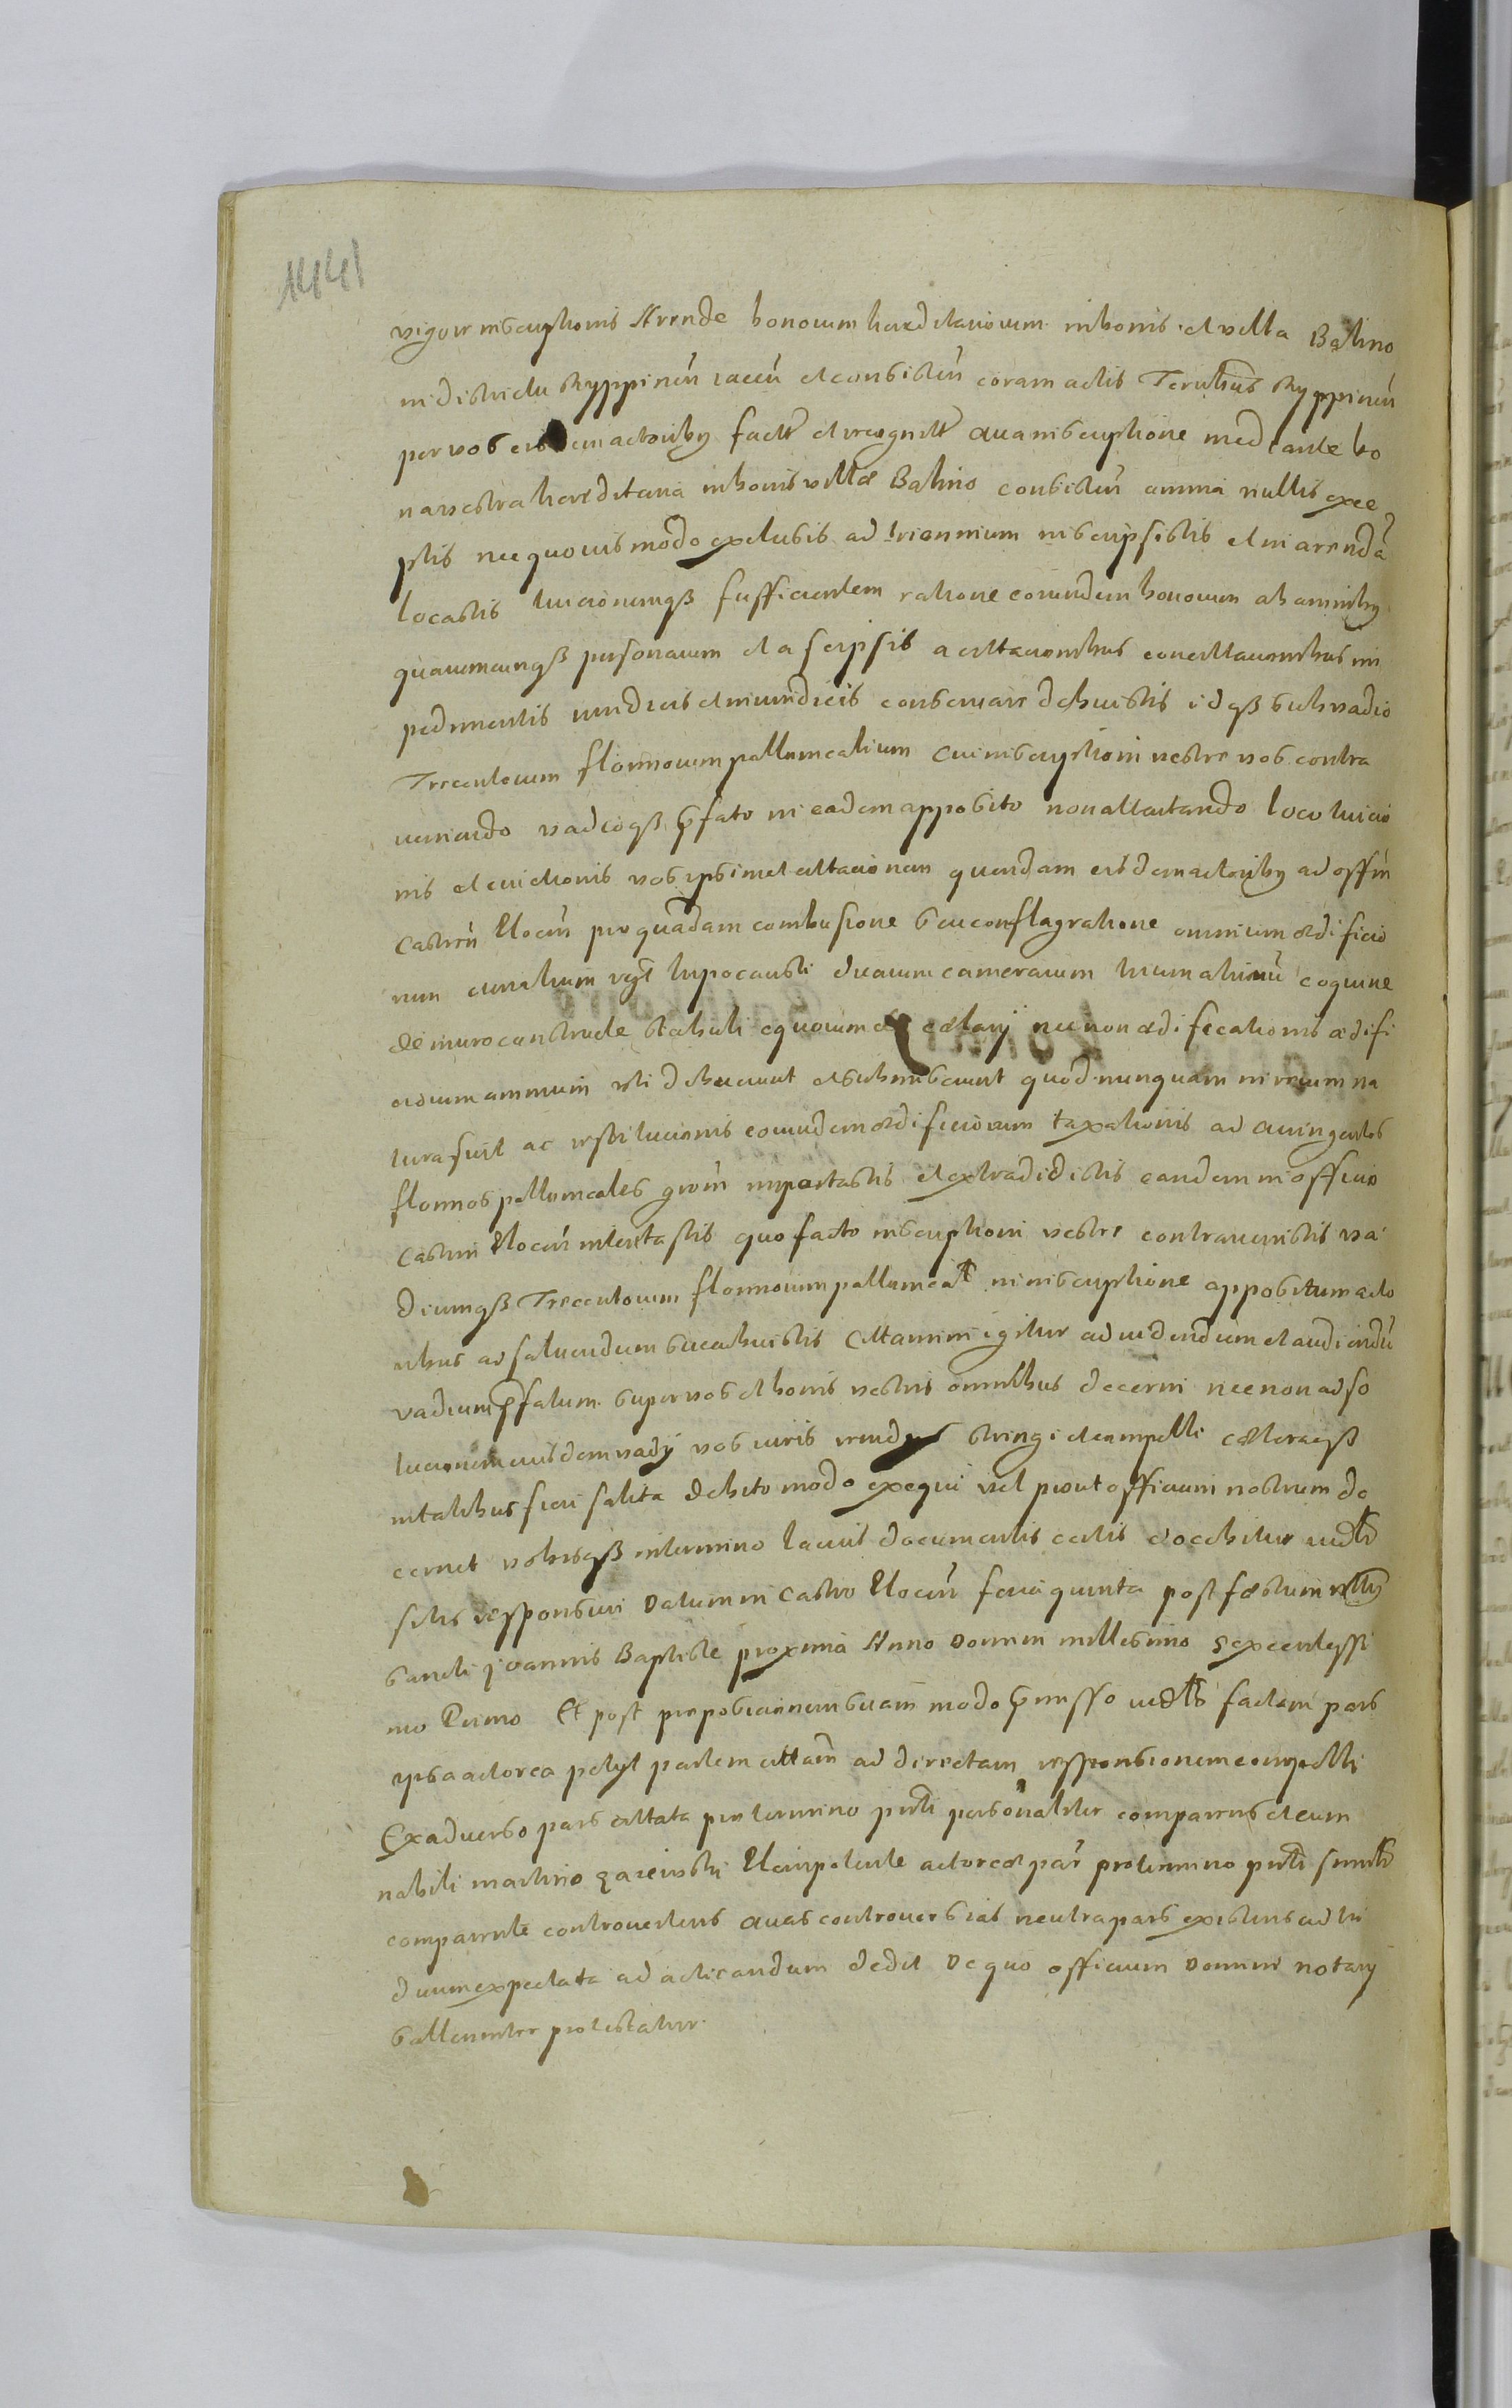 1441
vigore inscriptionis Arende bonorum hereditariorum in bonis et villa Balino
in districtu Ryppinen̄ iacen̄ et consisten̄ coram actis Terrestribus Ryppinen̄
per vos eisdem actoribus fact̄ et recognit̄ Qua inscriptione mediante bo
na vestra hereditaria in bonis villæ Balino consisten̄ omnia nullis exce
ptis nec quouismodo exclusis ad triennium inscripsistis et in arendā
locastis tuicionemqꝫ sufficientem ratione eorundem bonorum ab omnibus
quarumcunqꝫ personarum et a se ipsis a cittacionibus concittacionibus im
pedimentis iuridicis et iniuridicis conseruare debuistis idqꝫ sub vadio
Trecentorum florinorum pollonicalium Cui inscriptioni vestre vos contra
ueniendo vadioqꝫ p̄fato in eadem apposito non attentando loco tuicio
nis et euictionis vos ipsimet cittacionem quandam eisdem actoribus ad offm̄
Castren̄ Plocen̄ pro quadam combustione seu conflagratione omnium ædificio
rum curialium vꝫt hypocausti duarum camerarum coquine
de muro constructe stabuli equorum et cellarij necnon ædificationis ædifi
ciorum omnium vti debuerunt et subinscrerunt quod nunquam in rerum na
tura fuit ac restitucionis eorundem ædificiorum taxationis ad Quingentos
florinos pollonicales grom̄ importastis et extradidistis eandem in officio
Castren̄ Plocen̄ intentastis quo facto inscriptioni vestre contrauenistis va
diumqꝫ Trecentorum florinorum pollonical̄ in inscriptione appositum acto
ribus ad soluendum succubuistis Cittamini igitur ad videndum et audiendū
vadium p̄fatum super vos et bonis vestris omnibus decerni necnon ad so
lucionem eiusdem vadij vos iuris remedijs stringi et compelli cæteraqꝫ
in talibus fieri solita debito modo exequi vel prout officium nostrum de
cernet vobisqꝫ in termino lacius documentis certis docebitur iudꝉr
sitis responsuri Datum in Castro Plocen̄ feria quinta post festum
Sancti Joannis Baptiste proxima Anno Domini millesimo Sexcentessi
mo Primo Et post propositionem suam modo p̄misso iudꝉr factam pars
ipsa actorea petijt partem cittatam ad directam responsionem compelli
Exaduerso pars cittata pro termino pn̄ti personaliter comparens et cum
nobili Martino Plenipotente actoreæ par̄ pro termino pn̄ti similr̄
comparente controuertens Quas controuersias neutra pars existens ad tri
duum expectata ad acticandum dedit De quo officium Domini notarij
sollenniter protestatur.